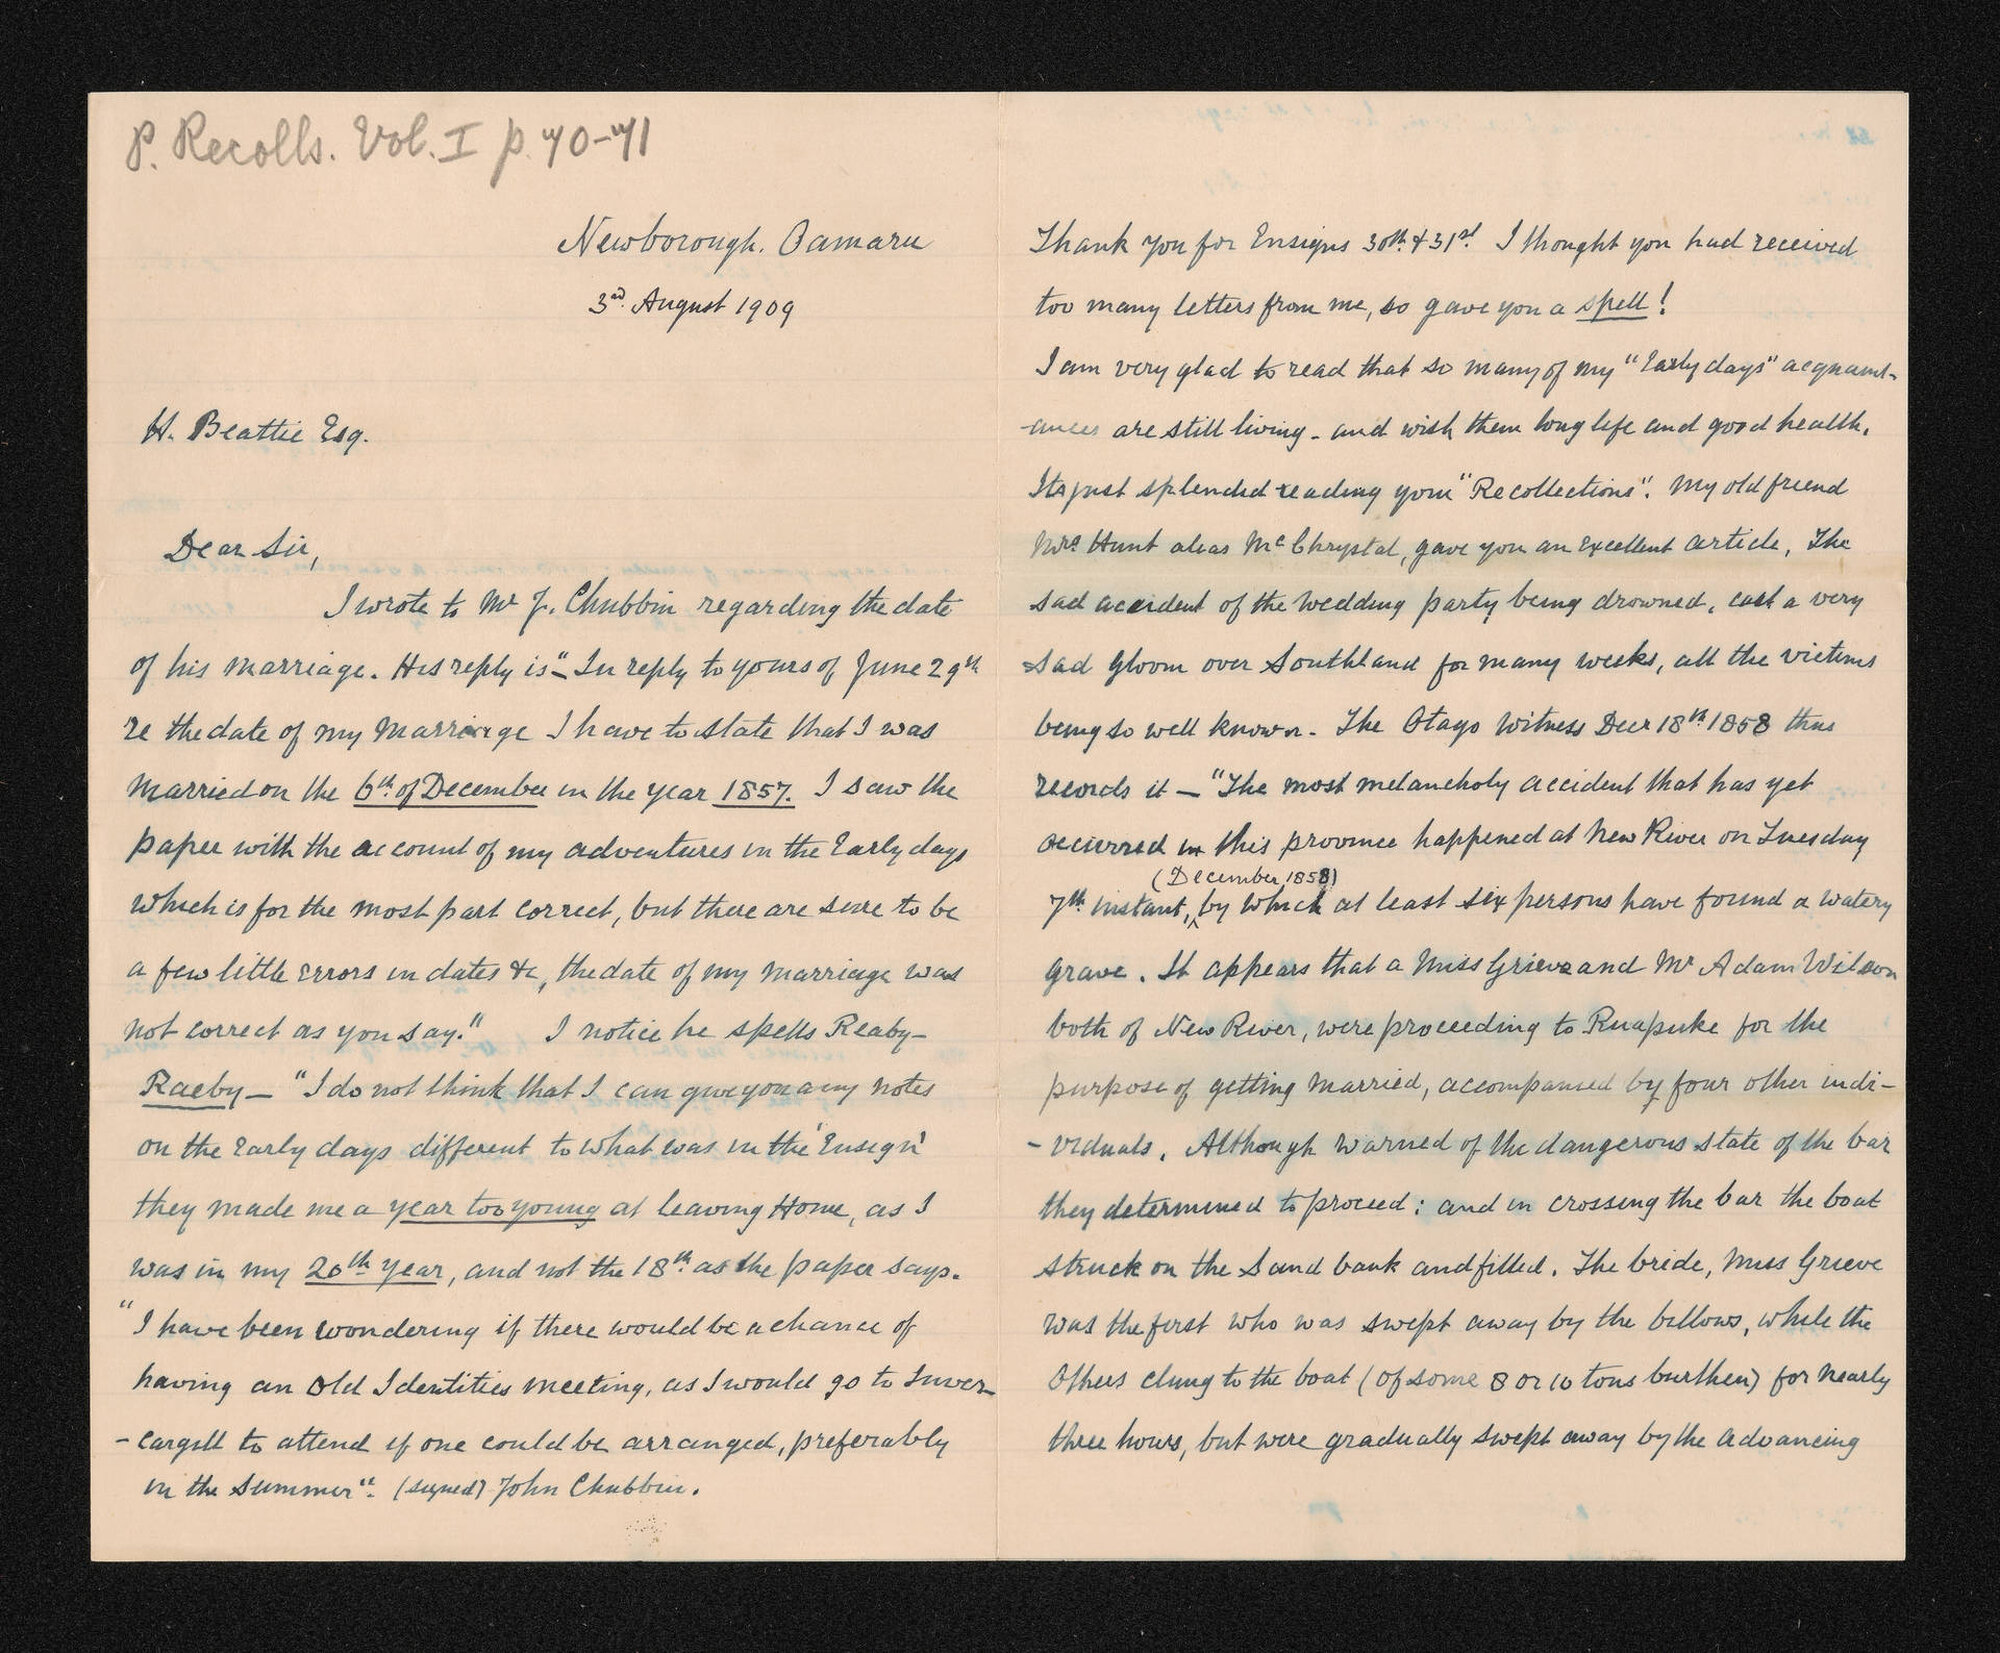 P. Recolls. Vol. I p. 40-41
Newborough. Oamaru
3rd. August 1909
H. Beattie Esq.
Dear Sir,
I wrote to Mr J. Chubbin regarding the date
of his marriage. His reply is "– In reply to yours of June 29th
re the date of my marriage I have to state that I was
married on the 6th of December in the year 1857. I saw the
paper with the account of my adventures in the Early days
which is for the most part correct, but there are sure to be
a few little errors in dates &c, the date of my marriage was
not correct as you say." I notice he spells Reaby–
Raeby – "I do not think that I can give you any notes
on the Early days different to what was in the 'Ensign'
they made me a year too young at leaving Home, as I
was in my 20th year, and not the 18th as the paper says.
"I have been wondering if there would be a chance of
having an Old Identities meeting, as I would go to Inver-
-cargill to attend if one could be arranged, preferably
in the summer". (signed) John Chubbin.
Thank you for Ensigns 30th & 31st. I thought you had received
too many letters from me, so gave you a spell!
I am very glad to read that so many of my "Early days" acquaint-
-ances are still living – and wish them long life and good health.
Its just splendid reading your "Recollections". My old friend
Mrs Hunt alias McChrystal, gave you an excellent article. The
sad accident of the wedding party being drowned, cast a very
sad gloom over Southland for many weeks, all the victims
being so well known. The Otago Witness Decr 18th 1858 thus
records it – "The most melancholy accident that has yet
occurred in this province happened at New River on Tuesday
(December 1858)
7th instant, by which at least six persons have found a watery
grave. It appears that a Miss Grieve and Mr Adam Wilson
both of New River, were proceeding to Ruapuke for the
purpose of getting married, accompanied by four other indi-
-viduals. Although warned of the dangerous state of the bar
they determined to proceed: and in crossing the bar the boat
struck on the Sand bank and filled. The bride, Miss Grieve
was the first who was swept away by the billows, while the
others clung to the boat (of some 8 or 10 tons burthen) for nearly
three hours, but were gradually swept away by the advancing